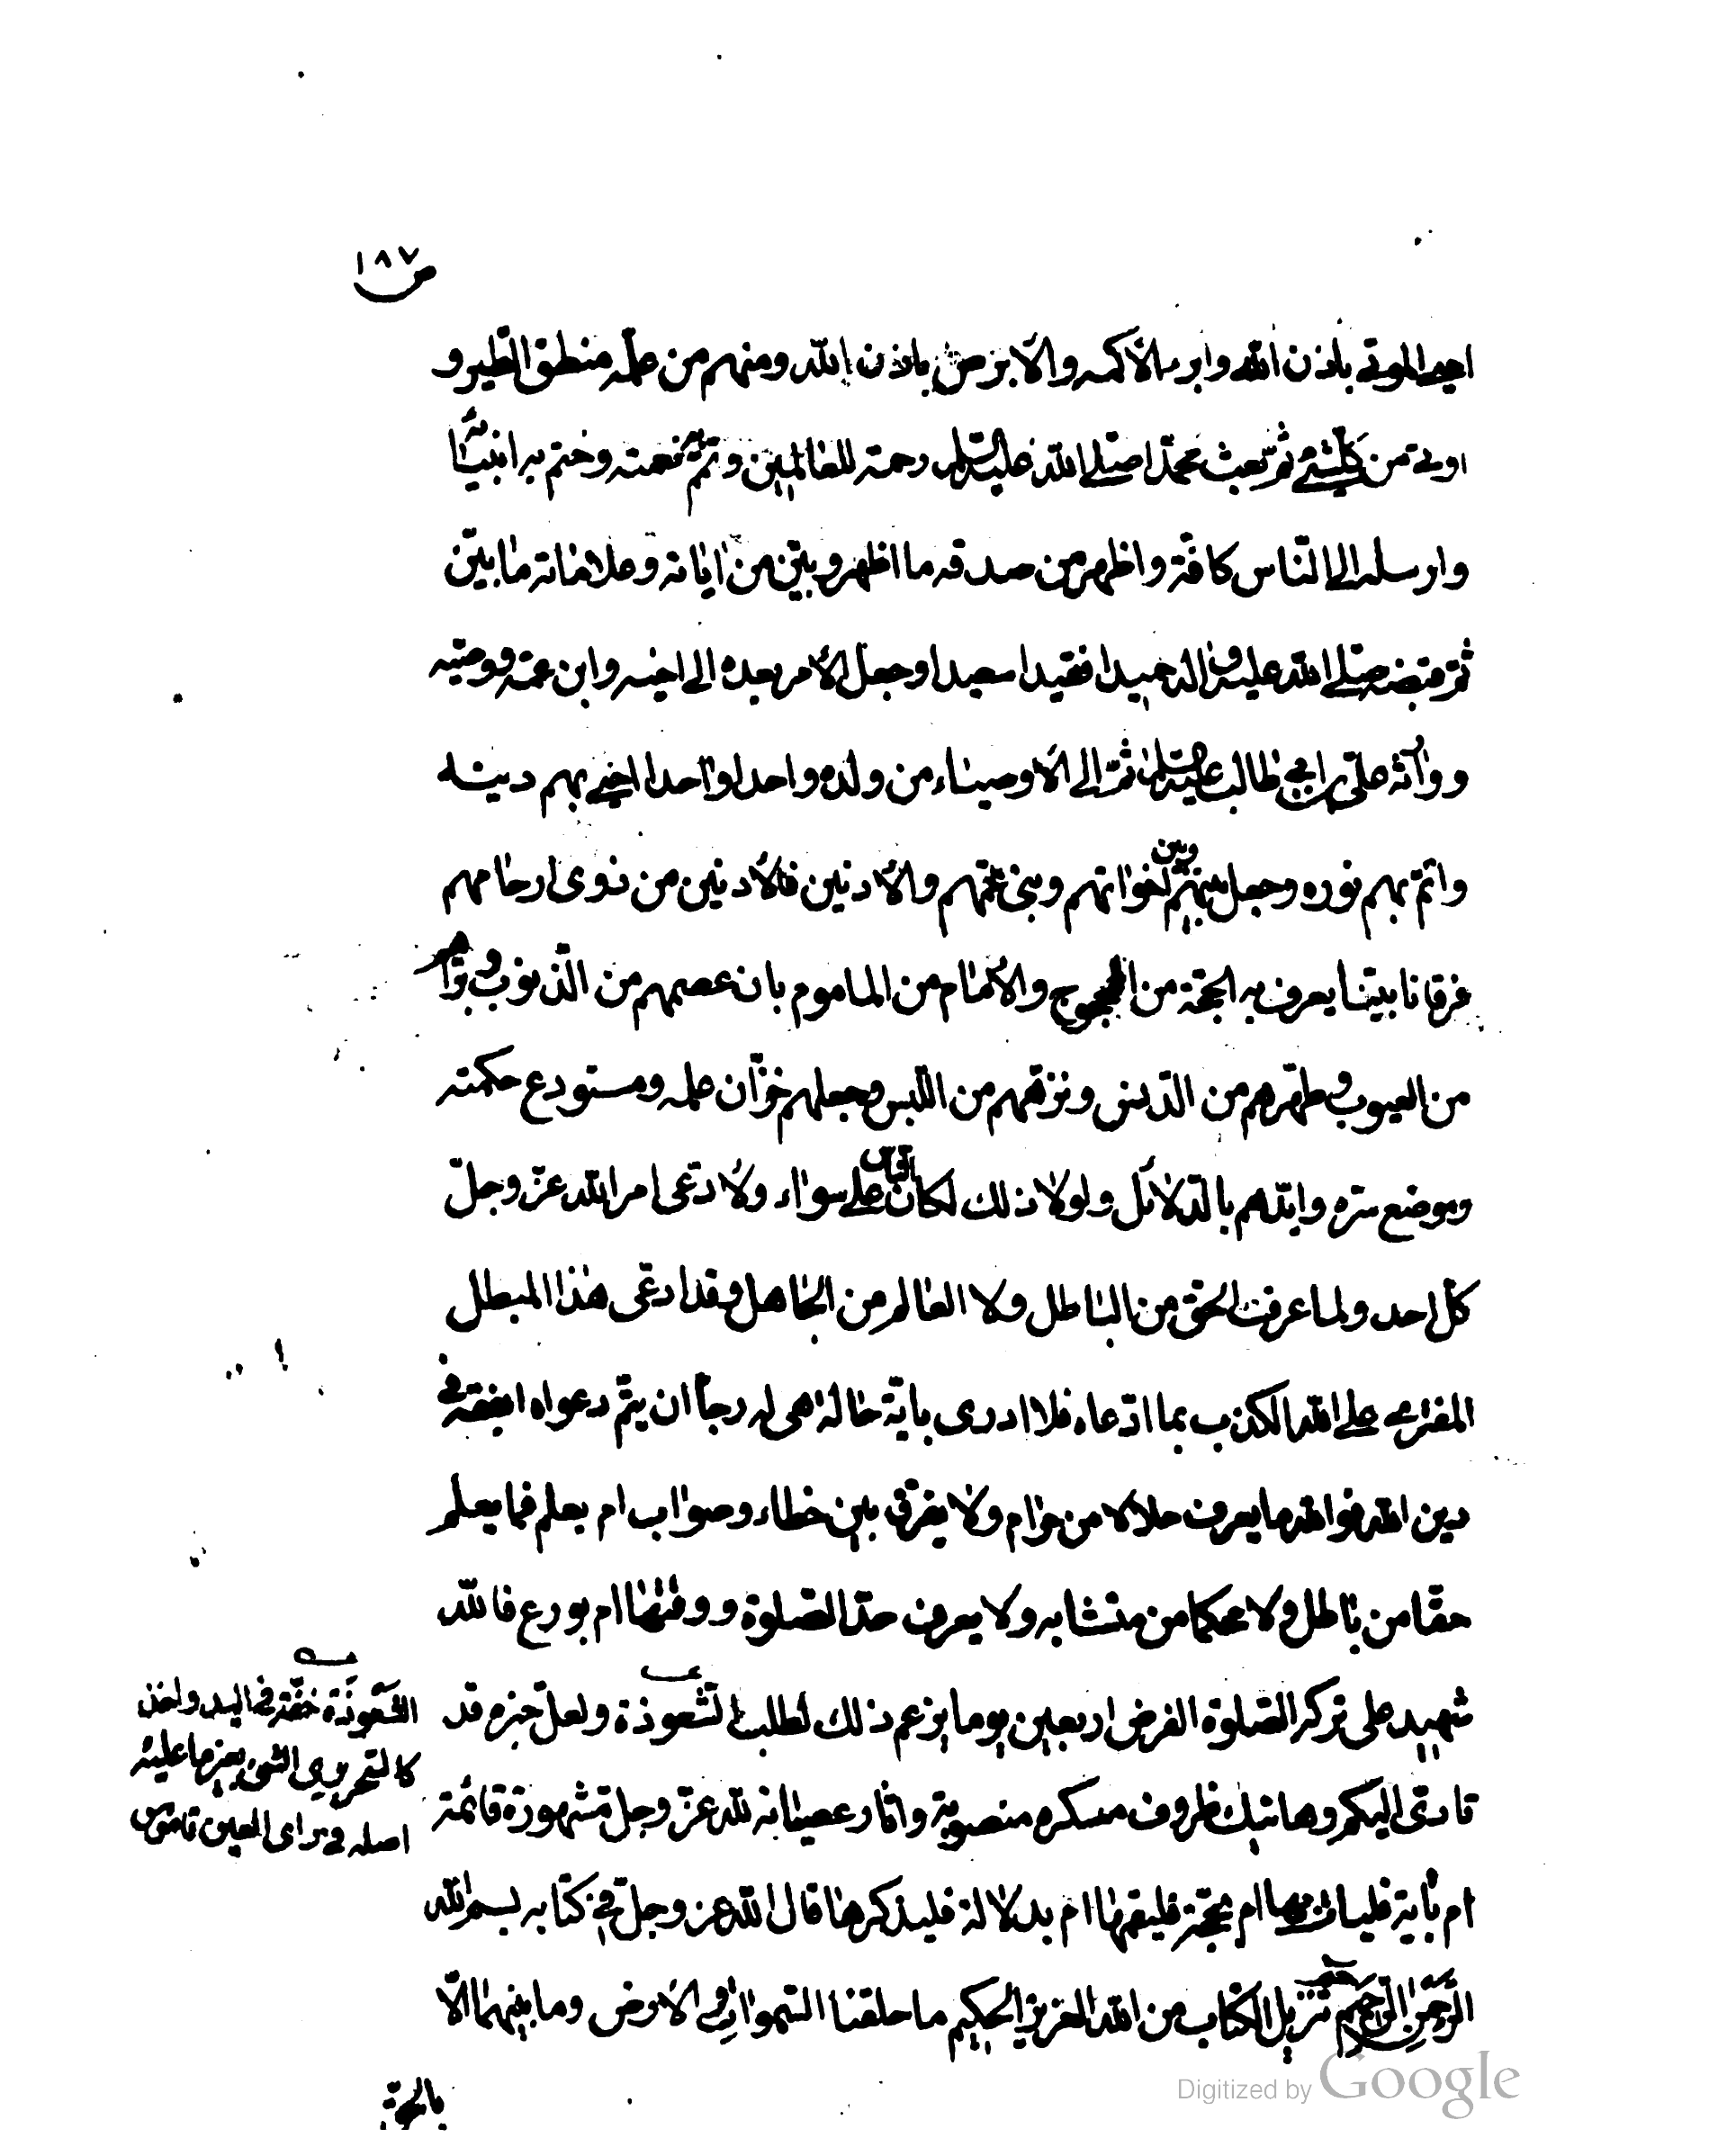 ص ١٨٧
احيى الموتى باذن الله وابرء الاكمه والابرص باذن الله ومنهم من علّمه منطق الطير و
اوتى من كلّ شئ ثمّ بعث محمّدا صلى الله عليه السلم رحمة للعالمين وتمّم نعمته وختم به انبيائه
وارسله الى النّاس كافّة واظهر من صدقه ما اظهر وبيّن من اياته وعلاماته ما بيّن
ثمّ قبضه صلى الله عليه واله حميدا فقيدا سعيدا وجعل الامر بعده الى اخيه وابن عمّه ووصيّه
ووارثه علىّ بن ابي طالب عليه السلم ثمّ الى الاوصياء من ولده واحدا واحدا احيى بهم دينه
واتمّ بهم نوره وجعل بينهم وبين اخوانهم وبنى عمّهم والادنين فالادنين من ذوى ارحامهم
فرقانا بيّنا يعرف به الحجّة من المحجوج والامام من الماموم بان عصمهم من الذّنوب وبرّاهم
من العيوب وطهّرهم من الدّنس ونزّههم من اللّبس وجعلهم خزّان علمه ومستودع حكمته
وموضع سرّه وايّدهم بالدّلائل ولولا ذلك لكان النّاس على سواء ولادّعى امر الله عزّ وجلّ
كلّ احد ولما عرف الحقّ من الباطل ولا العالم من الجاهل وقد ادعى هذا المبطل
المفترى على الله الكذب بما ادّعاه فلا ادرى باية حالة هى له رجاء ان يتمّ دعواه ابفقه فى
دين الله فوالله ما يعرف حلالا من حرام ولا يفرّق بين خطاء وصواب ام بعلم فما يعلم
حقّا من باطل ولا محكما من متشابه ولا يعرف حدّ الصّلوة ووقتها ام بورع فالله
شهيد على تركه الصّلوة الفرض اربعين يوما يزعم ذلك لطلب الشّعوذة ولعلّ خبره قد
تادّى اليكم وهاتيك ظروف مسكره منصوبة واثار عصيانه لله عزّ وجل مشهورة قائمة
ام باية فليات بها ام بحجّة فليقمها ام بدلالة فليذكرها قال الله عز وجلّ فى كتابه بسم الله
الرّحمن الرّحيم حم تنزيل الكتاب من الله العزيز الحكيم ما خلقنا السّموات والارض وما بينهما الّا
بالحقّ
الشّعوذة خفّة فى اليد واخذ
كالسّحر يرى الشئ بغير ما عليه
اصله فى راى العين قاموس